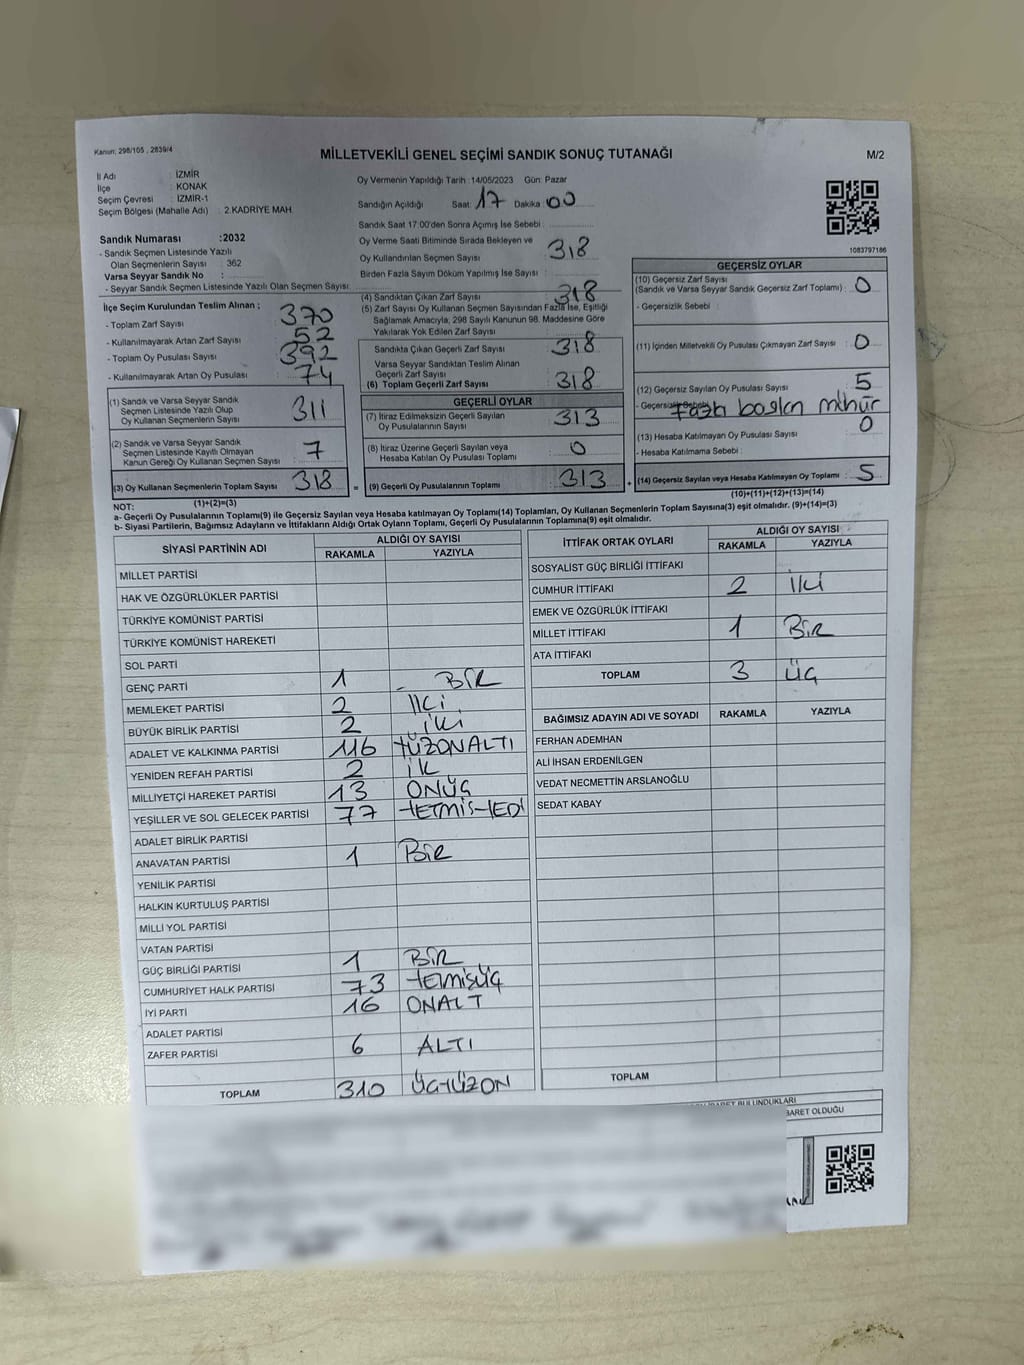 Kanun: 298/105 , 2839/4
MİLLETVEKİLİ GENEL SEÇİMİ SANDIK SONUÇ TUTANAĞI
M/2
İl Adı : İZMİR
İlçe : KONAK
Seçim Çevresi : İZMİR-1
Seçim Bölgesi (Mahalle Adı) : 2.KADRİYE MAH.
Sandık Numarası :2032
- Sandık Seçmen Listesinde Yazılı
Olan Seçmenlerin Sayısı : 362
Varsa Seyyar Sandık No :
- Seyyar Sandık Seçmen Listesinde Yazılı Olan Seçmen Sayısı:
Oy Vermenin Yapıldığı Tarih :14/05/2023 Gün: Pazar
Sandığın Açıldığı Saat: 17 Dakika: 00
Sandık Saat 17:00'den Sonra Açımış İse Sebebi :
Oy Verme Saati Bitiminde Sırada Bekleyen ve
Oy Kullandırılan Seçmen Sayısı : 318
Birden Fazla Sayım Döküm Yapılmış İse Sayısı :
1083797186
İlçe Seçim Kurulundan Teslim Alınan ;
- Toplam Zarf Sayısı : 370
- Kullanılmayarak Artan Zarf Sayısı : 52
- Toplam Oy Pusulası Sayısı : 392
- Kullanılmayarak Artan Oy Pusulası : 74
(1) Sandık ve Varsa Seyyar Sandık
Seçmen Listesinde Yazılı Olup
Oy Kullanan Seçmenlerin Sayısı : 311
(2) Sandık ve Varsa Seyyar Sandık
Seçmen Listesinde Kayıtlı Olmayan
Kanun Gereği Oy Kullanan Seçmen Sayısı : 7
(3) Oy Kullanan Seçmenlerin Toplam Sayısı : 318
(4) Sandıktan Çıkan Zarf Sayısı : 318
(5) Zarf Sayısı Oy Kullanan Seçmen Sayısından Fazla İse, Eşitliği
Sağlamak Amacıyla, 298 Sayılı Kanunun 98. Maddesine Göre
Yakılarak Yok Edilen Zarf Sayısı :
Sandıkta Çıkan Geçerli Zarf Sayısı : 318
Varsa Seyyar Sandıktan Teslim Alınan
Geçerli Zarf Sayısı :
(6) Toplam Geçerli Zarf Sayısı : 318
GEÇERLİ OYLAR
(7) İtiraz Edilmeksizin Geçerli Sayılan
Oy Pusulalarının Sayısı : 313
(8) İtiraz Üzerine Geçerli Sayılan veya
Hesaba Katılan Oy Pusulası Toplamı : 0
= (9) Geçerli Oy Pusulalarının Toplamı : 313 +
GEÇERSİZ OYLAR
(10) Geçersiz Zarf Sayısı
(Sandık ve Varsa Seyyar Sandık Geçersiz Zarf Toplamı) : 0
- Geçersizlik Sebebi :
(11) İçinden Milletvekili Oy Pusulası Çıkmayan Zarf Sayısı : 0
(12) Geçersiz Sayılan Oy Pusulası Sayısı : 5
- Geçersizlik Sebebi : Fazla basılan mühür
(13) Hesaba Katılmayan Oy Pusulası Sayısı : 0
- Hesaba Katılmama Sebebi :
(14) Geçersiz Sayılan veya Hesaba Katılmayan Oy Toplamı : 5
NOT: (1)+(2)=(3)
(10)+(11)+(12)+(13)=(14)
a- Geçerli Oy Pusulalarının Toplamı(9) ile Geçersiz Sayılan veya Hesaba katılmayan Oy Toplamı(14) Toplamları, Oy Kullanan Seçmenlerin Toplam Sayısına(3) eşit olmalıdır. (9)+(14)=(3)
b- Siyasi Partilerin, Bağımsız Adayların ve İttifakların Aldığı Ortak Oyların Toplamı, Geçerli Oy Pusulalarının Toplamına(9) eşit olmalıdır.
SİYASİ PARTİNİN ADI
ALDIĞI OY SAYISI
RAKAMLA YAZIYLA
MİLLET PARTİSİ
HAK VE ÖZGÜRLÜKLER PARTİSİ
TÜRKİYE KOMÜNİST PARTİSİ
TÜRKİYE KOMÜNİST HAREKETİ
SOL PARTİ
GENÇ PARTİ 1 BİR
MEMLEKET PARTİSİ 2 İKİ
BÜYÜK BİRLİK PARTİSİ 2 İKİ
ADALET VE KALKINMA PARTİSİ 116 YÜZONALTI
YENİDEN REFAH PARTİSİ 2 İK
MİLLİYETÇİ HAREKET PARTİSİ 13 ONÜÇ
YEŞİLLER VE SOL GELECEK PARTİSİ 77 YETMİŞYEDİ
ADALET BİRLİK PARTİSİ
ANAVATAN PARTİSİ 1 BİR
YENİLİK PARTİSİ
HALKIN KURTULUŞ PARTİSİ
MİLLİ YOL PARTİSİ
VATAN PARTİSİ
GÜÇ BİRLİĞİ PARTİSİ 1 BİR
CUMHURİYET HALK PARTİSİ 73 YETMİŞÜÇ
İYİ PARTİ 16 ONALT
ADALET PARTİSİ
ZAFER PARTİSİ 6 ALTI
TOPLAM 310 ÜÇYÜZON
İTTİFAK ORTAK OYLARI
ALDIĞI OY SAYISI
RAKAMLA YAZIYLA
SOSYALİST GÜÇ BİRLİĞİ İTTİFAKI
CUMHUR İTTİFAKI 2 İKİ
EMEK VE ÖZGÜRLÜK İTTİFAKI
MİLLET İTTİFAKI 1 BİR
ATA İTTİFAKI
TOPLAM 3 ÜÇ
BAĞIMSIZ ADAYIN ADI VE SOYADI RAKAMLA YAZIYLA
FERHAN ADEMHAN
ALİ İHSAN ERDENİLGEN
VEDAT NECMETTİN ARSLANOĞLU
SEDAT KABAY
TOPLAM
BULUNDUKLARI
OLDUĞU